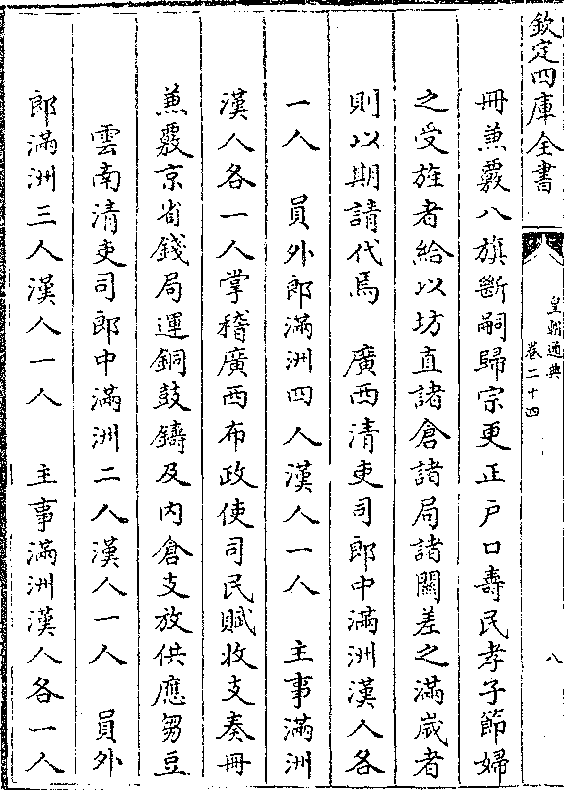 欽定四庫全書
皇朝通典
卷二十四
八
冊兼覈八旗斷嗣歸宗更正戶口壽民孝子節婦
之受旌者給以坊直諸倉諸局諸關差之滿歲者
則以期請代焉　廣西清吏司郎中滿洲漢人各
一人　員外郎滿洲四人漢人一人　主事滿洲
漢人各一人掌稽廣西布政使司民賦收支奏冊
兼覈京省錢局運銅鼓鑄及內倉支放供應芻豆
雲南清吏司郎中滿洲二人漢人一人　員外
郎滿洲三人漢人一人　主事滿洲漢人各一人